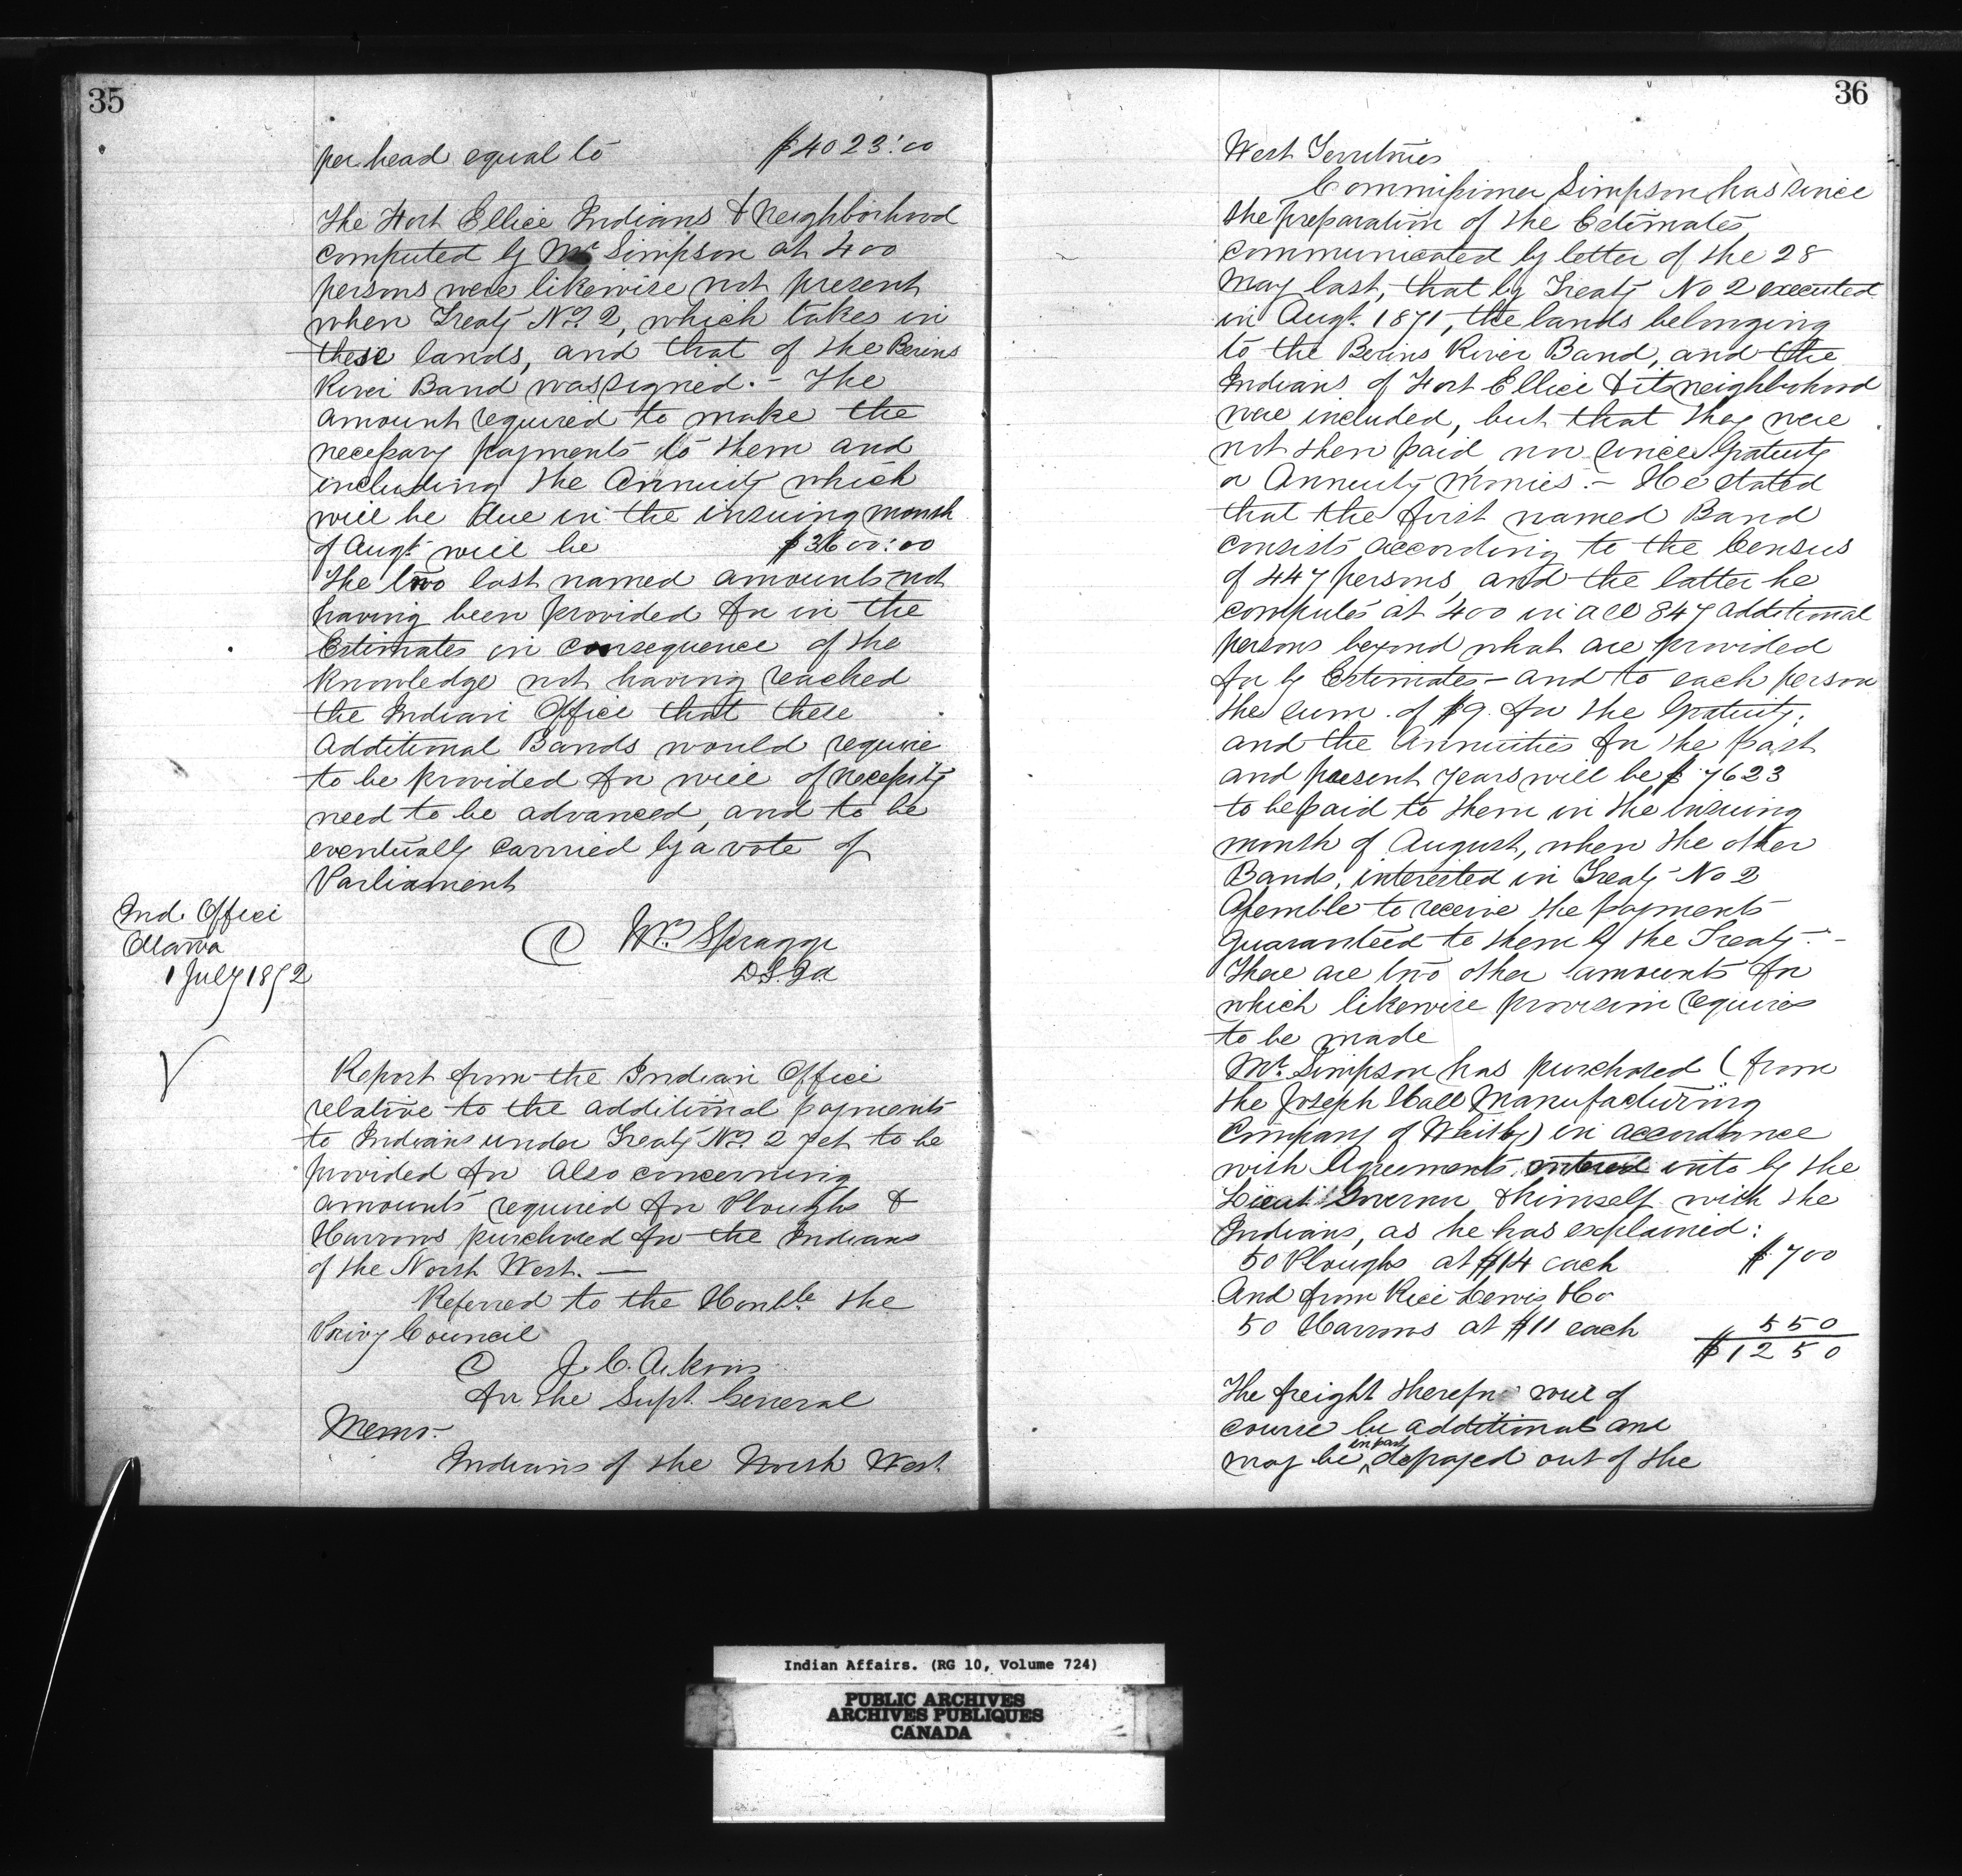 35
per head equal to $4023:00
The Fort Ellice Indians & Neighborhood
computed by Mr Simpson at 400
persons were likewise not present
when Treaty No. 2, which takes in
these lands, and that of the Berens
River Band was signed. – The
amount required to make the
necessary payments to them and
including the Annuity which
will be due in the insuing month
of Augt. will be $3600:00
The two last named amounts not
having been provided for in the
Estimates in consequence of the
knowledge not having reached
the Indian Office that these
Additional Bands would require
to be provided for will of necessity
need to be advanced, and to be
eventually carried by a vote of
Parliament
Ind. Office
Ottawa
1 July 1872
Wm. Spragge
D.S.I.A
Report from the Indian Office
relative to the additional payments
to Indians under Treaty No. 2 yet to be
provided for also concerning
amounts required for Ploughs &
Harrows purchased for the Indians
of the North West. —
Referred to the Honble. the
Privy Council
J. C. Aikins
for the Supt. General
Memo.
Indians of the North West
36
West Territories
Commissioner Simpson has since
the preparation of the Estimates,
communicated by letter of the 28
May last, that by Treaty No 2 executed
in Augt. 1871, the lands belonging
to the Berins River Band, and the
Indians of Fort Ellice & its neighborhood
were included, but that they were
not then paid nor since Gratuity
or Annuity Monies. – He stated
that the first named Band
consists according to the Census
of 447 persons and the latter he
computes at 400 in all 847 additional
persons beyond what are provided
for by Estimates – and to each person
the sum of $9. for the Gratuity,
and the Annuities for the past
and present years will be $7623
to be paid to them in the insuing
month of August, when the other
Bands, interested in Treaty No 2
Assemble to receive the payments
guaranteed to them by the Treaty. –
There are two other amounts for
which likewise provision requires
to be made
Mr. Simpson has purchased (from
the Joseph Hall Manufacturing
Company of Whitby) in accordance
with Agreements entered into by the
Lieut Governor & himself with the
Indians, as he has explained:
50 Ploughs at $14 each $700
And from Rice Lewis & Co
50 Harrows at $11 each 550
$1250
The freight therefor will of
course be additional and
may be in part defrayed out of the
Indian Affairs. (RG 10, Volume 724)
PUBLIC ARCHIVES
ARCHIVES PUBLIQUES
CANADA